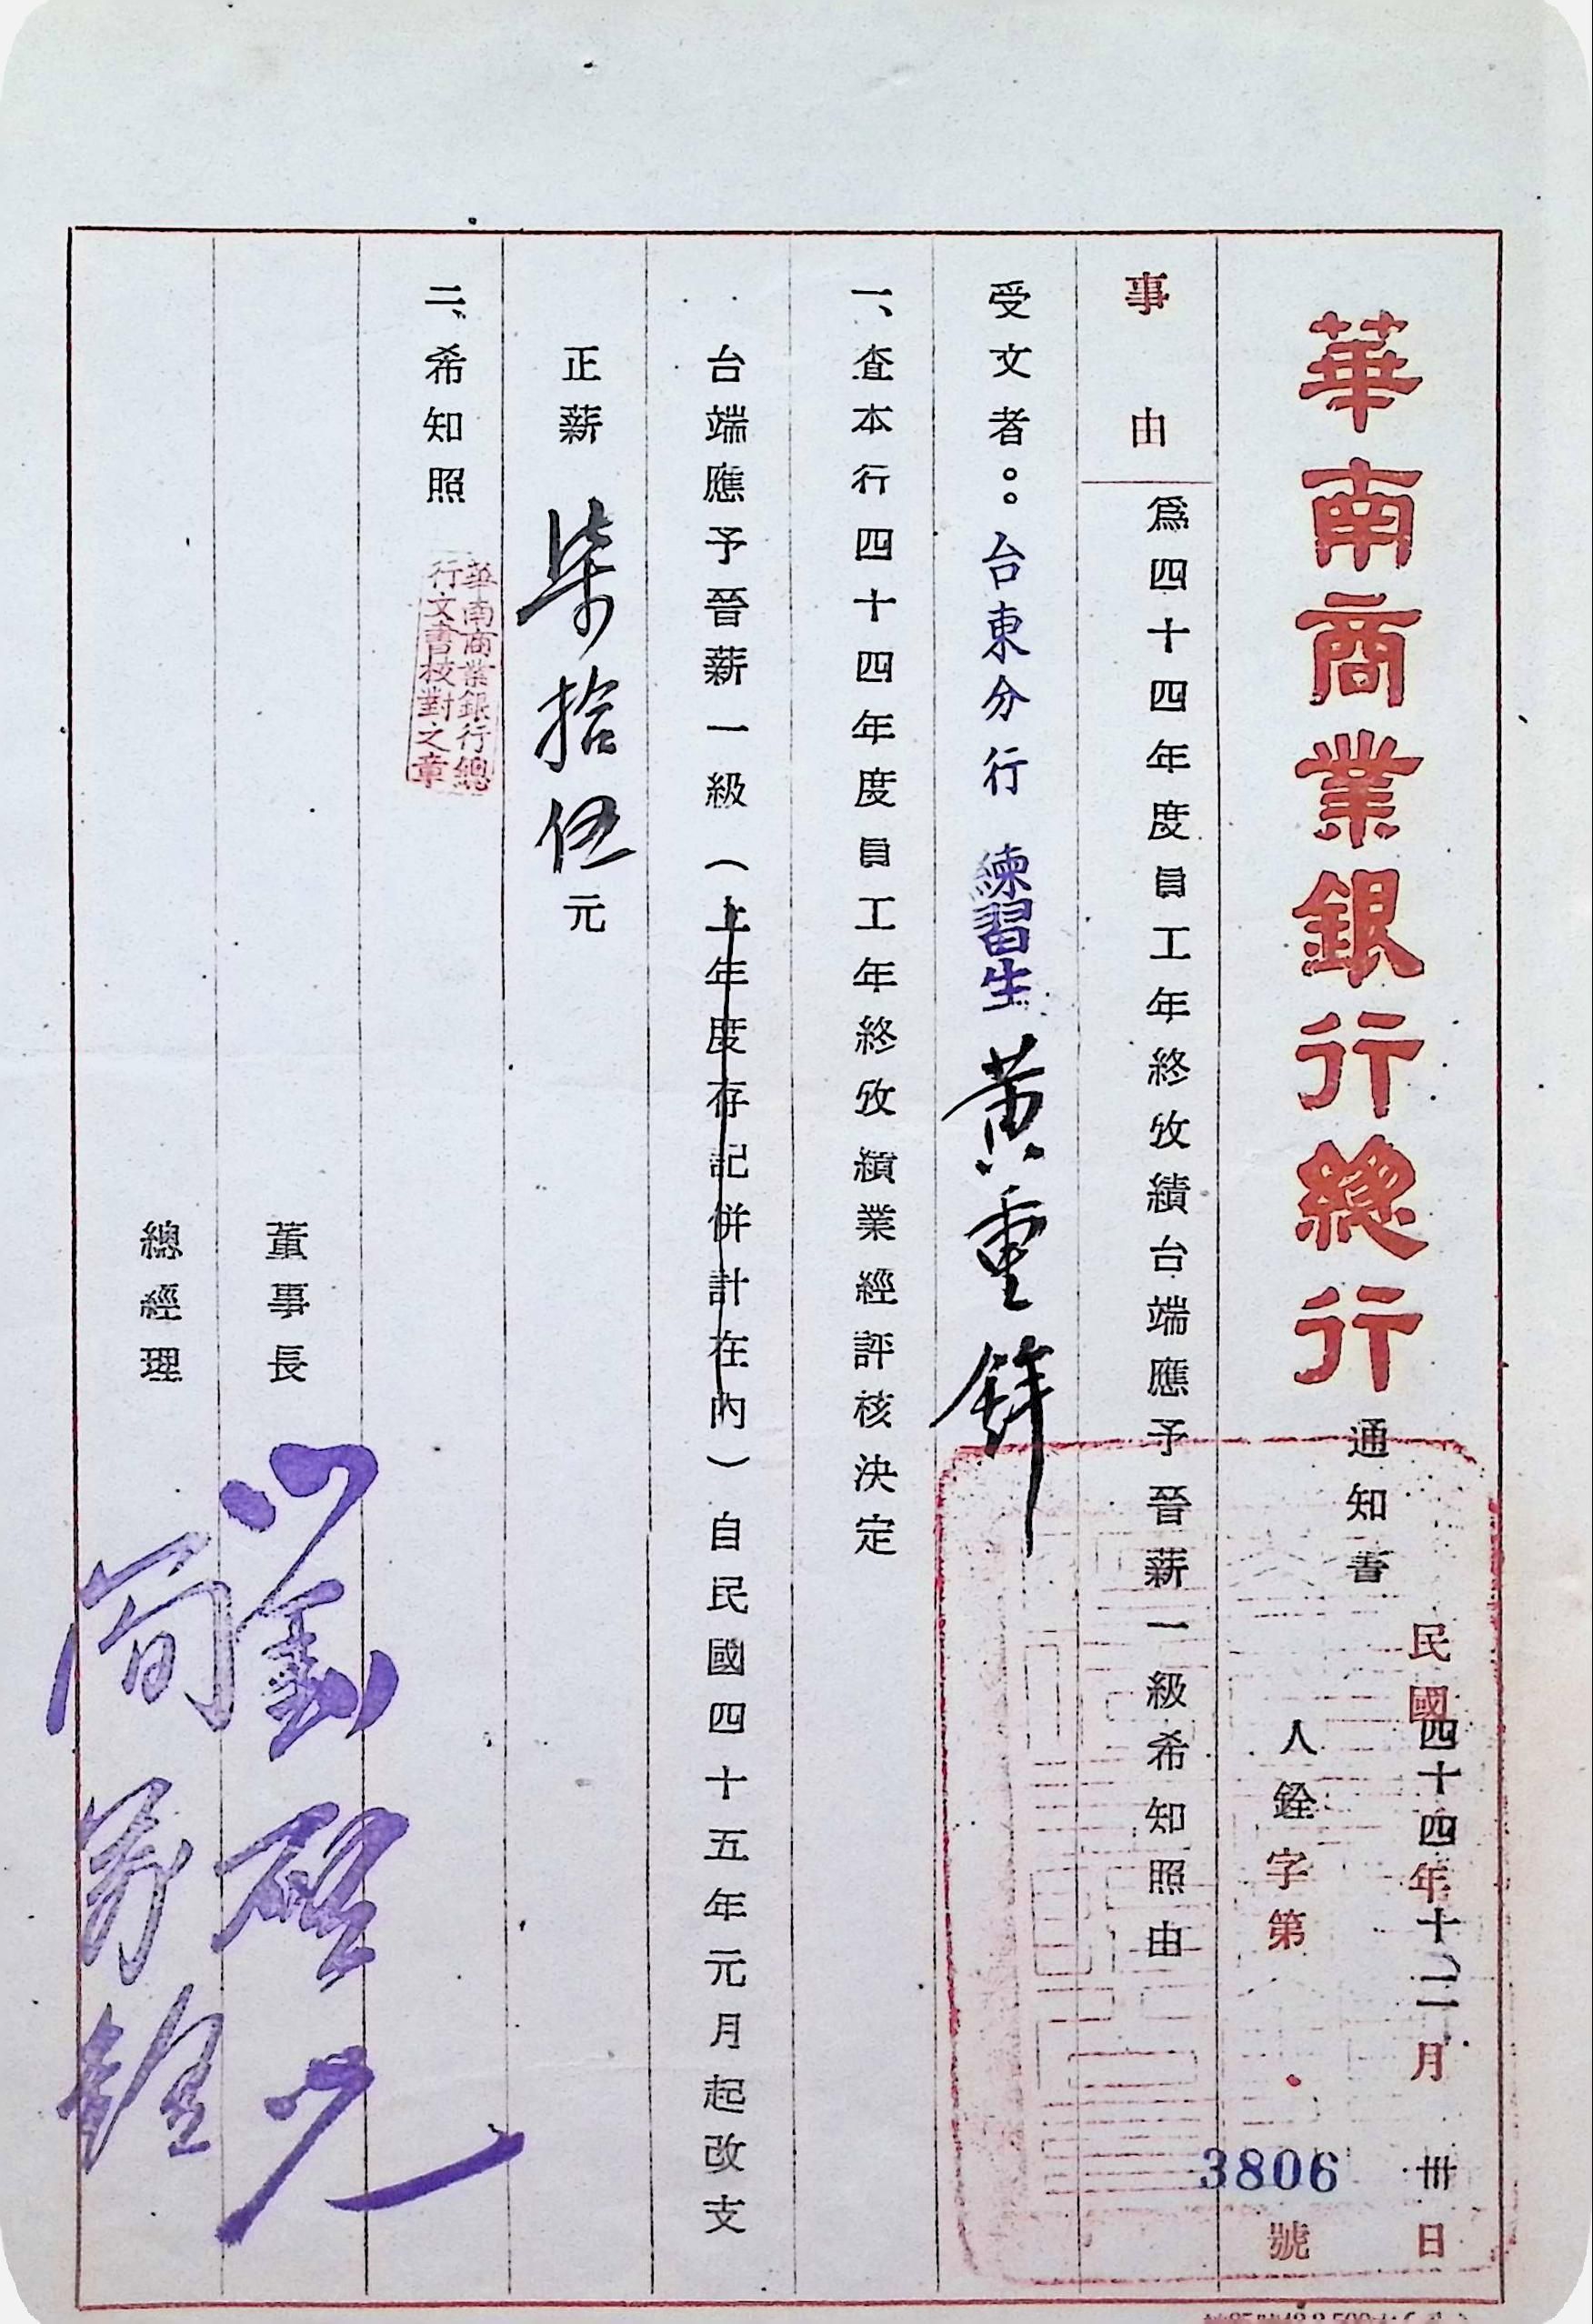 華南商業銀行總行
通知書
民國四十四年十二月卅日
人銓字第3806號
事由
為四十四年度員工年終攷績台端應予晉薪一級希知照由
受文者：台東分行 練習生 黃重鋅
一、查本行四十四年度員工年終攷績業經評核決定
台端應予晉薪一級（上年度存記併計在內）自民國四十五年元月起改支
正薪柒拾伍元
二、希知照
華南商業銀行總
行文書校對之章
董事長 劉啓光
總經理